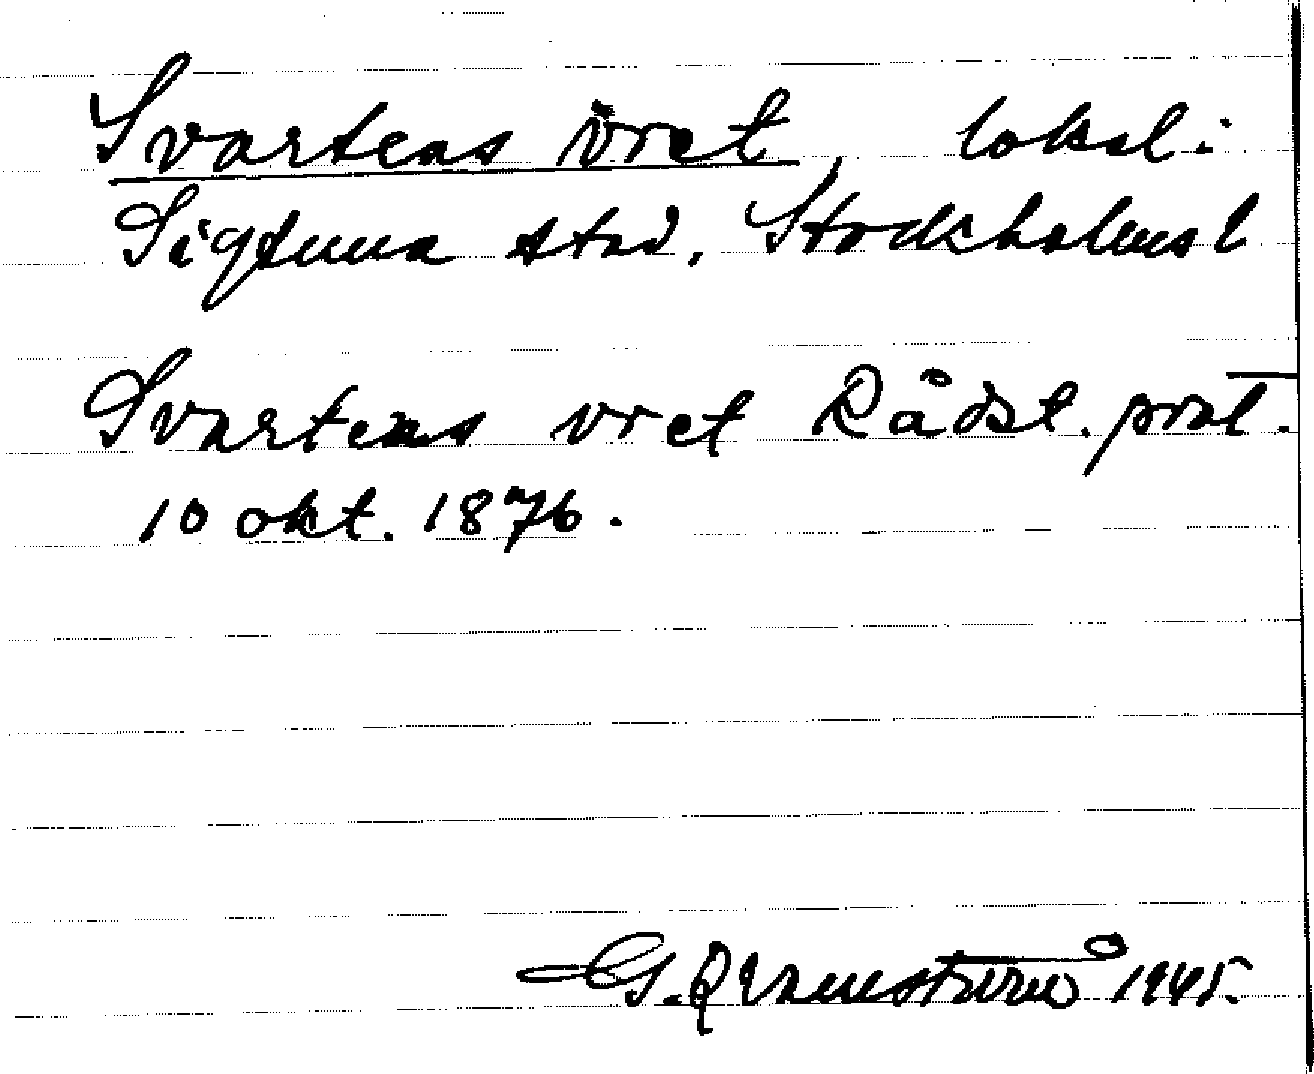 Svartens vret, lokal i
Sigtuna stad, Stockholms l
Svartens vret Rådst. prot.
10 okt. 1876.
G. 1945.